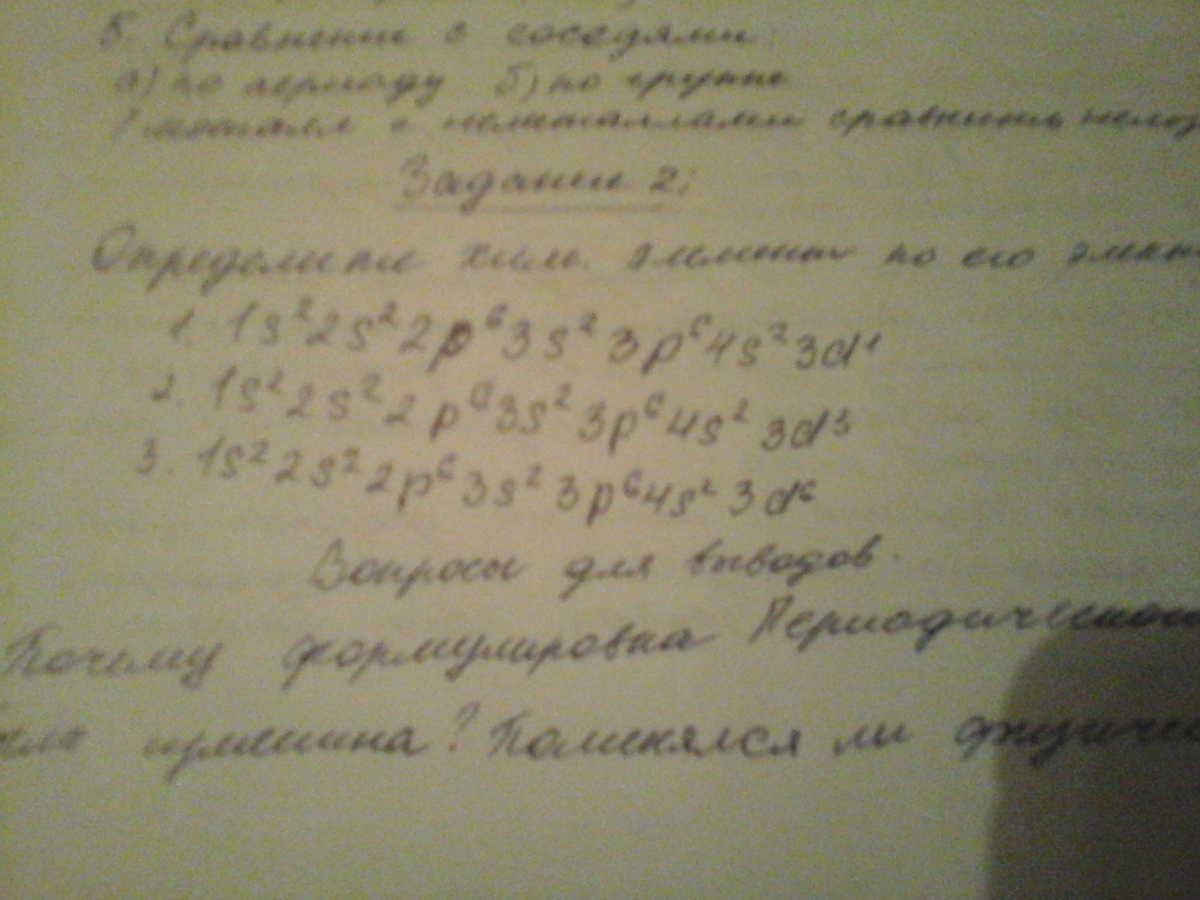 5. Сравнение с соседями:
а) по периоду б) по группе
металл с неметаллами сравнить
Задание 2:
Определите хим. элемент по его
1. 1s² 2s² 2p⁶ 3s² 3p⁶ 4s² 3d¹
2. 1s² 2s² 2p⁶ 3s² 3p⁶ 4s² 3d³
3. 1s² 2s² 2p⁶ 3s² 3p⁶ 4s² 3d⁶
Вопросы для выводов.
Почему формулировка Периодического
изменена? Поменялся ли